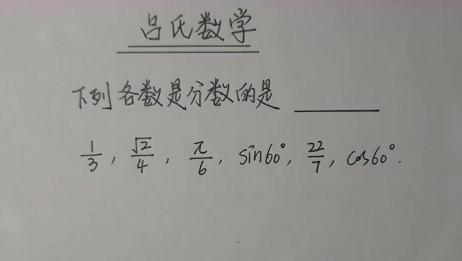 吕氏数学
下列各数是分数的是 ______
1/3, √2/4, π/6, sin60°, 22/7, cos60°.